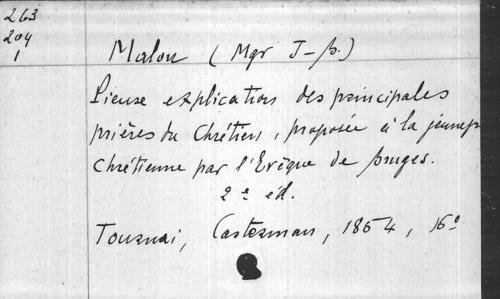 263
204
1
Malou (Mgr J-B.)
Pieuse explication des principales
prières du Chrétien, proposée à la jeuness
Chrétienne par l'Evêque de Bruges.
2e éd.
Tournai, Casterman, 1854, 16°